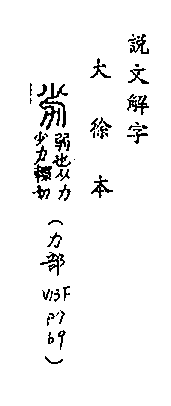 説文解字
大徐本
劣 弱也从力少力輟切（力部 V13F P769）